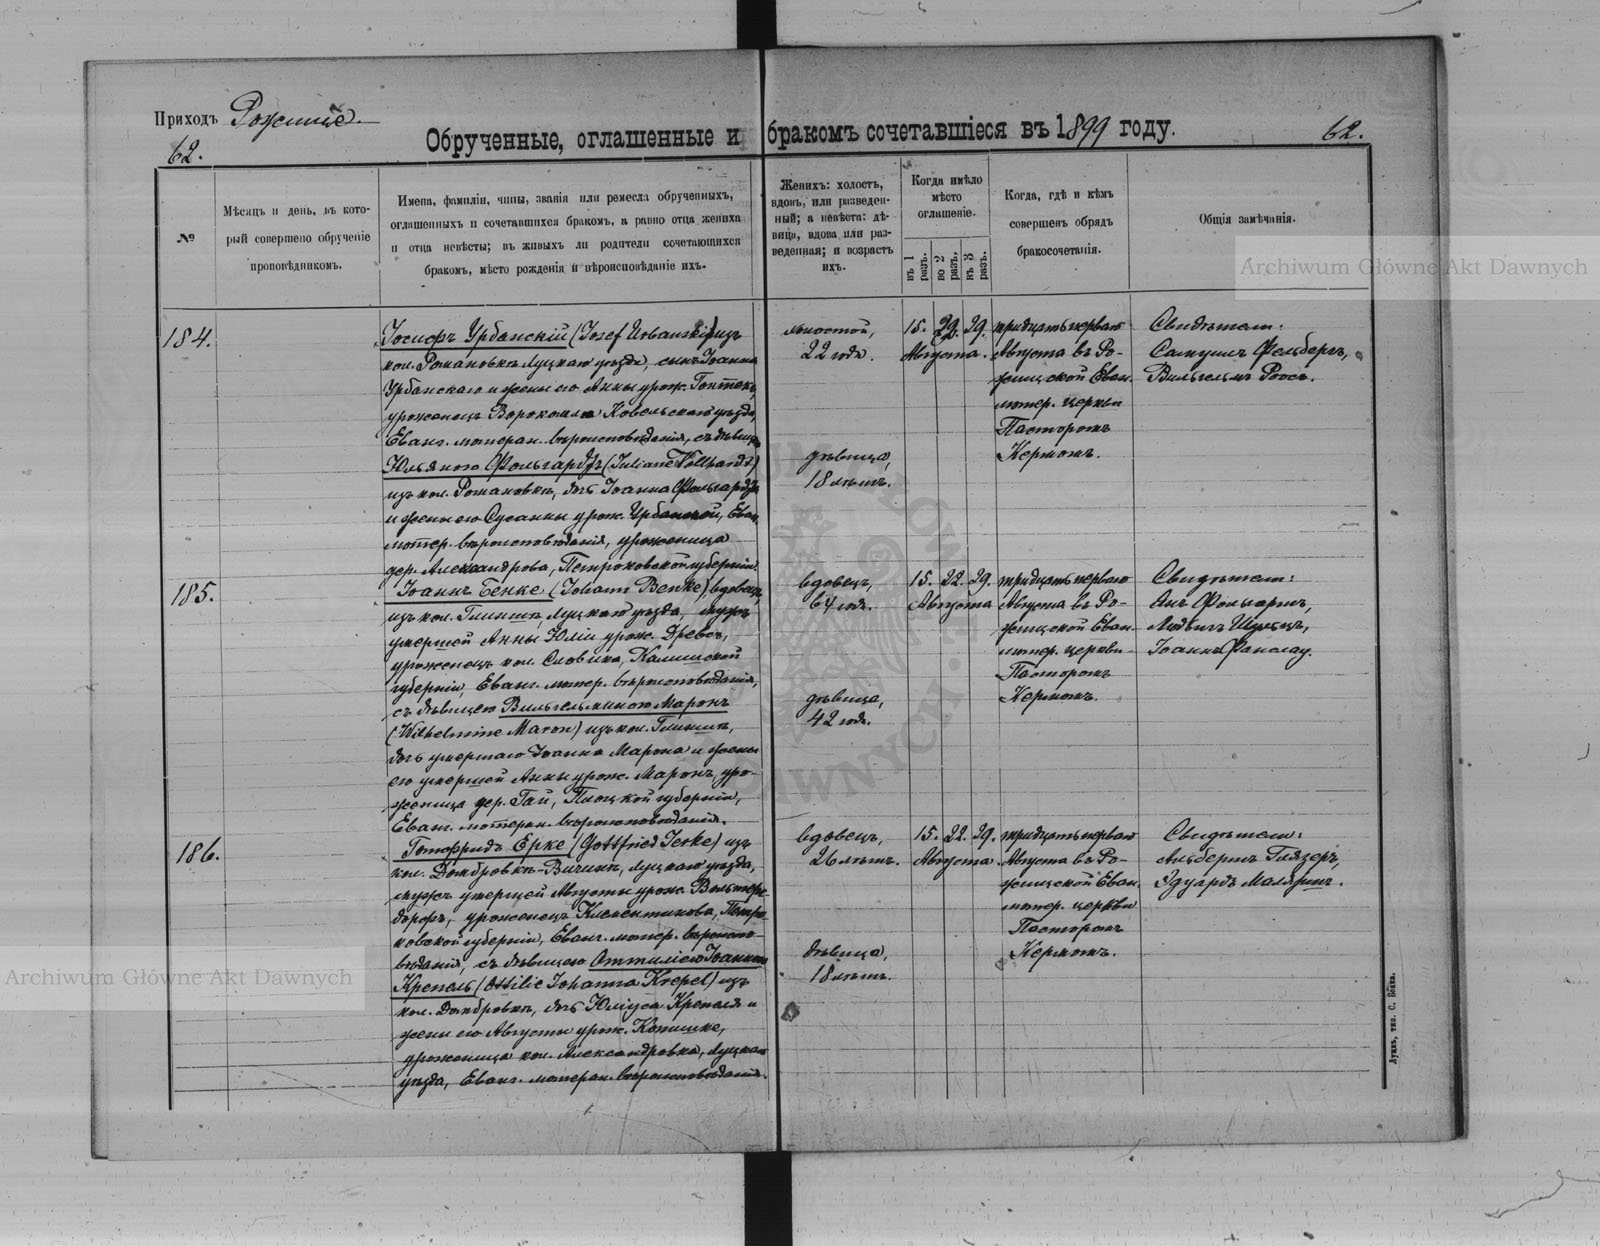 Приходъ Рожище.
Обрученные, оглашенные и бракомъ сочетавшіеся въ 1899 году.
62.
62.
№
Мѣсяцъ и день, въ кото-
рый совершено обрученіе
проповѣдникомъ.
Имена, фамиліи, чины, званія или ремесла обрученныхъ,
оглашенныхъ и сочетавшихся бракомъ, а равно отца жениха
и отца невѣсты; въ живыхъ ли родители сочетающихся
бракомъ, мѣсто рожденія и вѣроисповѣданіе ихъ.
Женихъ: холостъ,
вдовъ, или разведен-
ный; а невѣста: дѣ-
вица, вдова или раз-
веденная; и возрастъ
ихъ.
Когда имѣло
мѣсто
оглашеніе.
въ 1 разъ.
во 2 разъ.
въ 3 разъ.
Когда, гдѣ и кѣмъ
совершенъ обрядъ
бракосочетанія.
Общія замѣчанія.
184.
Іосифъ Урбанскій (Josef Urbanski) изъ
кол. Романовкъ Луцкаго уѣзда, сынъ Іоанна
Урбанскаго и жены его Анны урож.
уроженецъ Ковельскаго уѣзда,
Еванг. лютеран. вѣроисповѣданія, съ дѣвицею
Юльяною Фольгардтъ (Juliane Vollhardt)
изъ кол. Романовкъ, дочь Іоанна Фольгардта
и жены его Сусанны урож. Урбанской, Еван.
лютер. вѣроисповѣданія, уроженица
дер. Александрова, Петроковской губерніи.
холостой,
22 года.
дѣвица,
18 лѣтъ.
15. 22. 29.
Августа.
тридцать перваго
Августа въ Ро-
жищской Еван.
лютер. церкви
Пасторомъ
Керномъ.
Свидѣтели:
Самуилъ Фельбергъ,
Вильгельмъ Роосъ.
185.
Іоаннъ Бенке (Johann Benke) вдовецъ,
изъ кол. Луцкаго уѣзда, мужъ
умершей Анны Юліи урож. Древсъ,
уроженецъ кол. Словика, Калишской
губерніи, Еванг. лютер. вѣроисповѣданія,
съ дѣвицею Вильгельминою Маронъ
(Wilhelmine Maron) изъ кол.
дочь умершаго Іоанна Марона и жены
его умершей Анны урож. Маронъ, уро-
женица дер. Гай, Плоцкой губерніи,
Еванг. лютеран. вѣроисповѣданія.
вдовецъ,
64 год.
дѣвица,
42 года.
15. 22. 29.
Августа
тридцать перваго
Августа въ Ро-
жищской Еван.
лютер. церкви
Пасторомъ
Керномъ.
Свидѣтели:
Людвигъ
Іоаннъ Фанслау.
186.
Готфридъ Ерке (Gottfried Jerke) изъ
кол. Домбровкъ- Луцкаго уѣзда,
мужъ умершей Августы урож.
уроженецъ Клементинова, Петро-
ковской губерніи, Еванг. лютер. вѣроиспо-
вѣданія, съ дѣвицею Оттиліею Іоанною
Крепель (Ottilie Johanna Krepel) изъ
кол. Домбровкъ, дочь Юліуса Крепеля и
жены его Августы урож.
уроженица кол. Александровка, Луцкаго
уѣзда, Еванг. лютеран. вѣроисповѣданія.
вдовецъ,
26 лѣтъ.
дѣвица,
18 лѣтъ.
15. 22. 29.
Августа
тридцать перваго
Августа въ Ро-
жищской Еван.
лютер. церкви
Пасторомъ
Керномъ.
Свидѣтели:
Альбертъ Глязеръ,
Эдуардъ
Луцкъ, тип. С. Бокка.
Archiwum Główne Akt Dawnych
Archiwum Główne Akt Dawnych